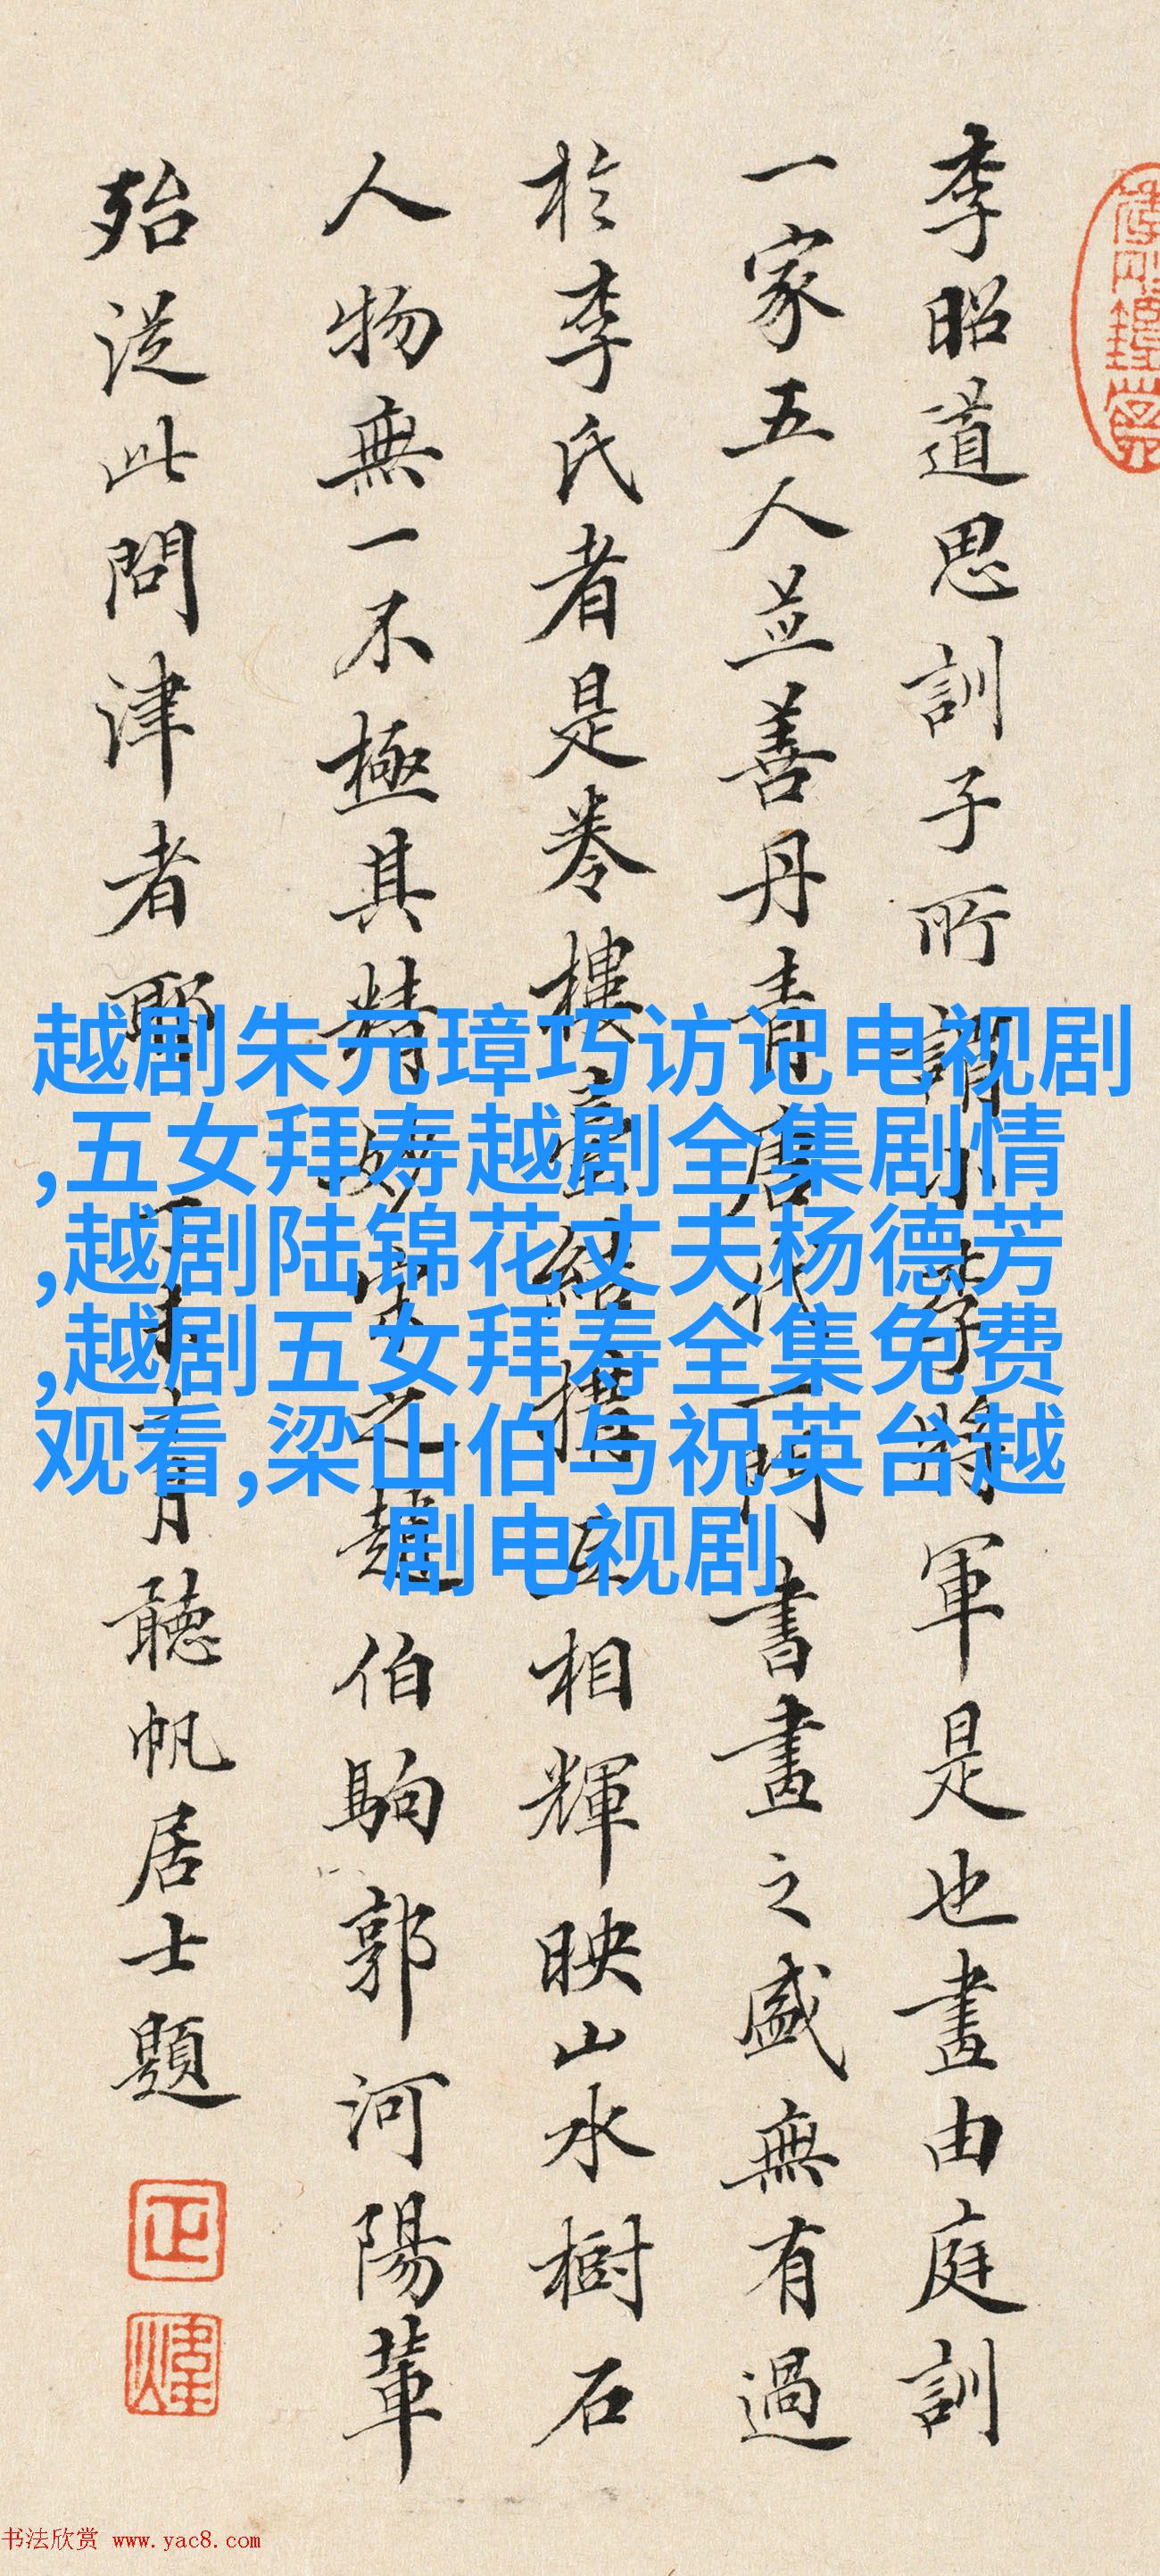 李昭道思訓子所謂小李将軍是也畫由庭訓
一家五人並善丹青唐代一門書畫之盛無有過
於李氏者是卷樓臺結構互相輝映山水樹石
人物無一不極其精妙宋之趙伯駒郭河陽輩
殆從此問津者耶
聽帆居士題
越剧朱元璋巧访记电视剧
,五女拜寿越剧全集剧情
,越剧陆锦花丈夫杨德芳
,越剧五女拜寿全集免费
观看,梁山伯与祝英台越
剧电视剧
书法欣赏 www.yac8.com